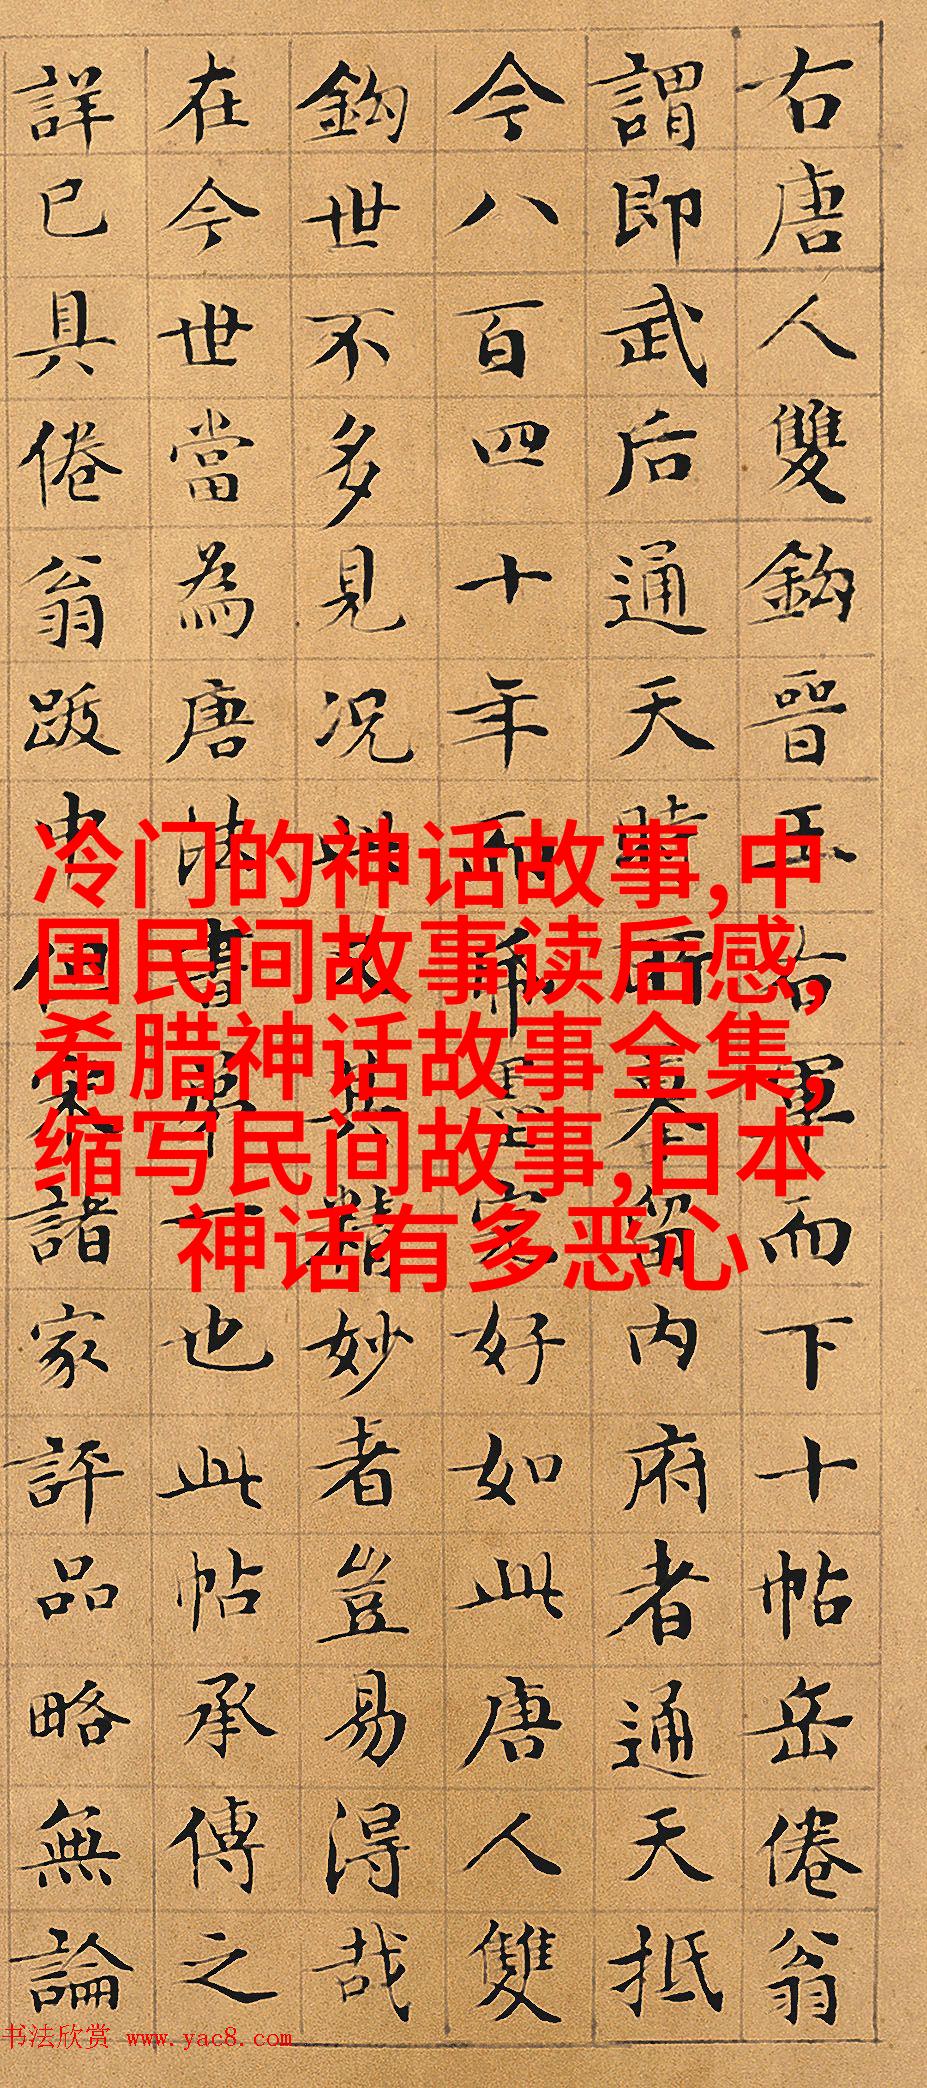 右唐人雙鈎晉王右軍而下十帖岳倦翁
謂即武后通天時所摹留內府者通天抵
今八百四十年而墨好如此唐人雙
鈎世不多見况此又其精妙者豈易得哉
在今世當為唐法書第一也此帖承傳之
詳已具倦翁跋中但諸家評品略無論
冷门的神话故事,中
国民间故事读后感,
希腊神话故事全集,
缩写民间故事,日本
神话有多恶心
书法欣赏 www.yac8.com